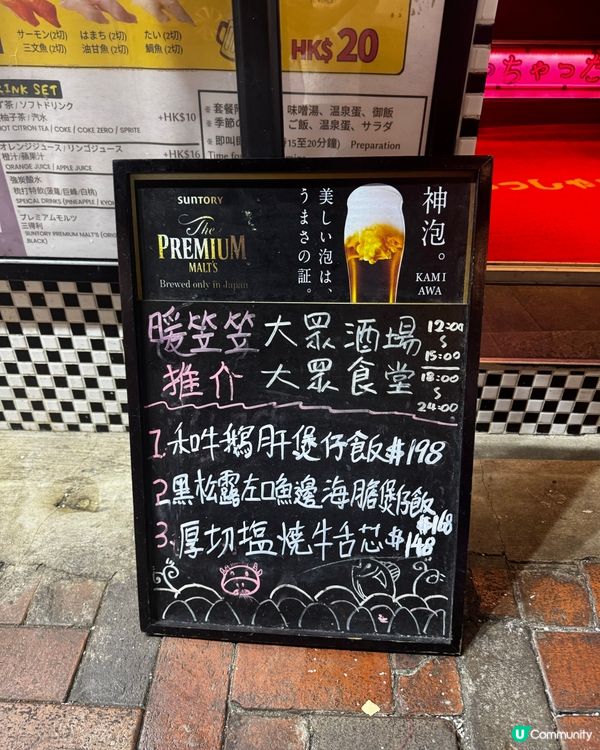 サーモン(2切) はまち(2切) たい(2切)
三文魚(2切) 油甘魚(2切) 鯛魚(2切)
HK$ 20
INK SET
茶/ソフトドリンク
柚子茶/汽水
HOT CITRON TEA / COKE / COKE ZERO / SPRITE
+HK$10
オレンジジュース/リンゴジュース
橙汁/蘋果汁
ORANGE JUICE / APPLE JUICE
+HK$16
強炭酸水
梳打特飲(菠蘿/巨蜂/白桃)
SPEICAL DRINKS (PINEAPPLE / KYO
プレミアムモルツ
三得利
SUNTORY PREMIUM MALT'S (ORI
BLACK)
※ 套餐
※ 季節の
※ 即叫即
味噌湯、温泉蛋、御飯
ご飯、温泉蛋、サラダ
15至20分鐘) Preparation
ちゃった
っしゃい
SUNTORY
The
PREMIUM
MALT'S
Brewed only in Japan
美しい泡は、
うまさの証。
神泡。
KAMI
AWA
暖笠笠 大眾酒場 12:00
~
15:00
推介 大眾食堂 18:00
~
24:00
1. 和牛鵝肝煲仔飯 $198
2. 黑松露左口魚邊海膽煲仔飯
$168
3. 厚切塩燒牛舌芯 $148
U Community